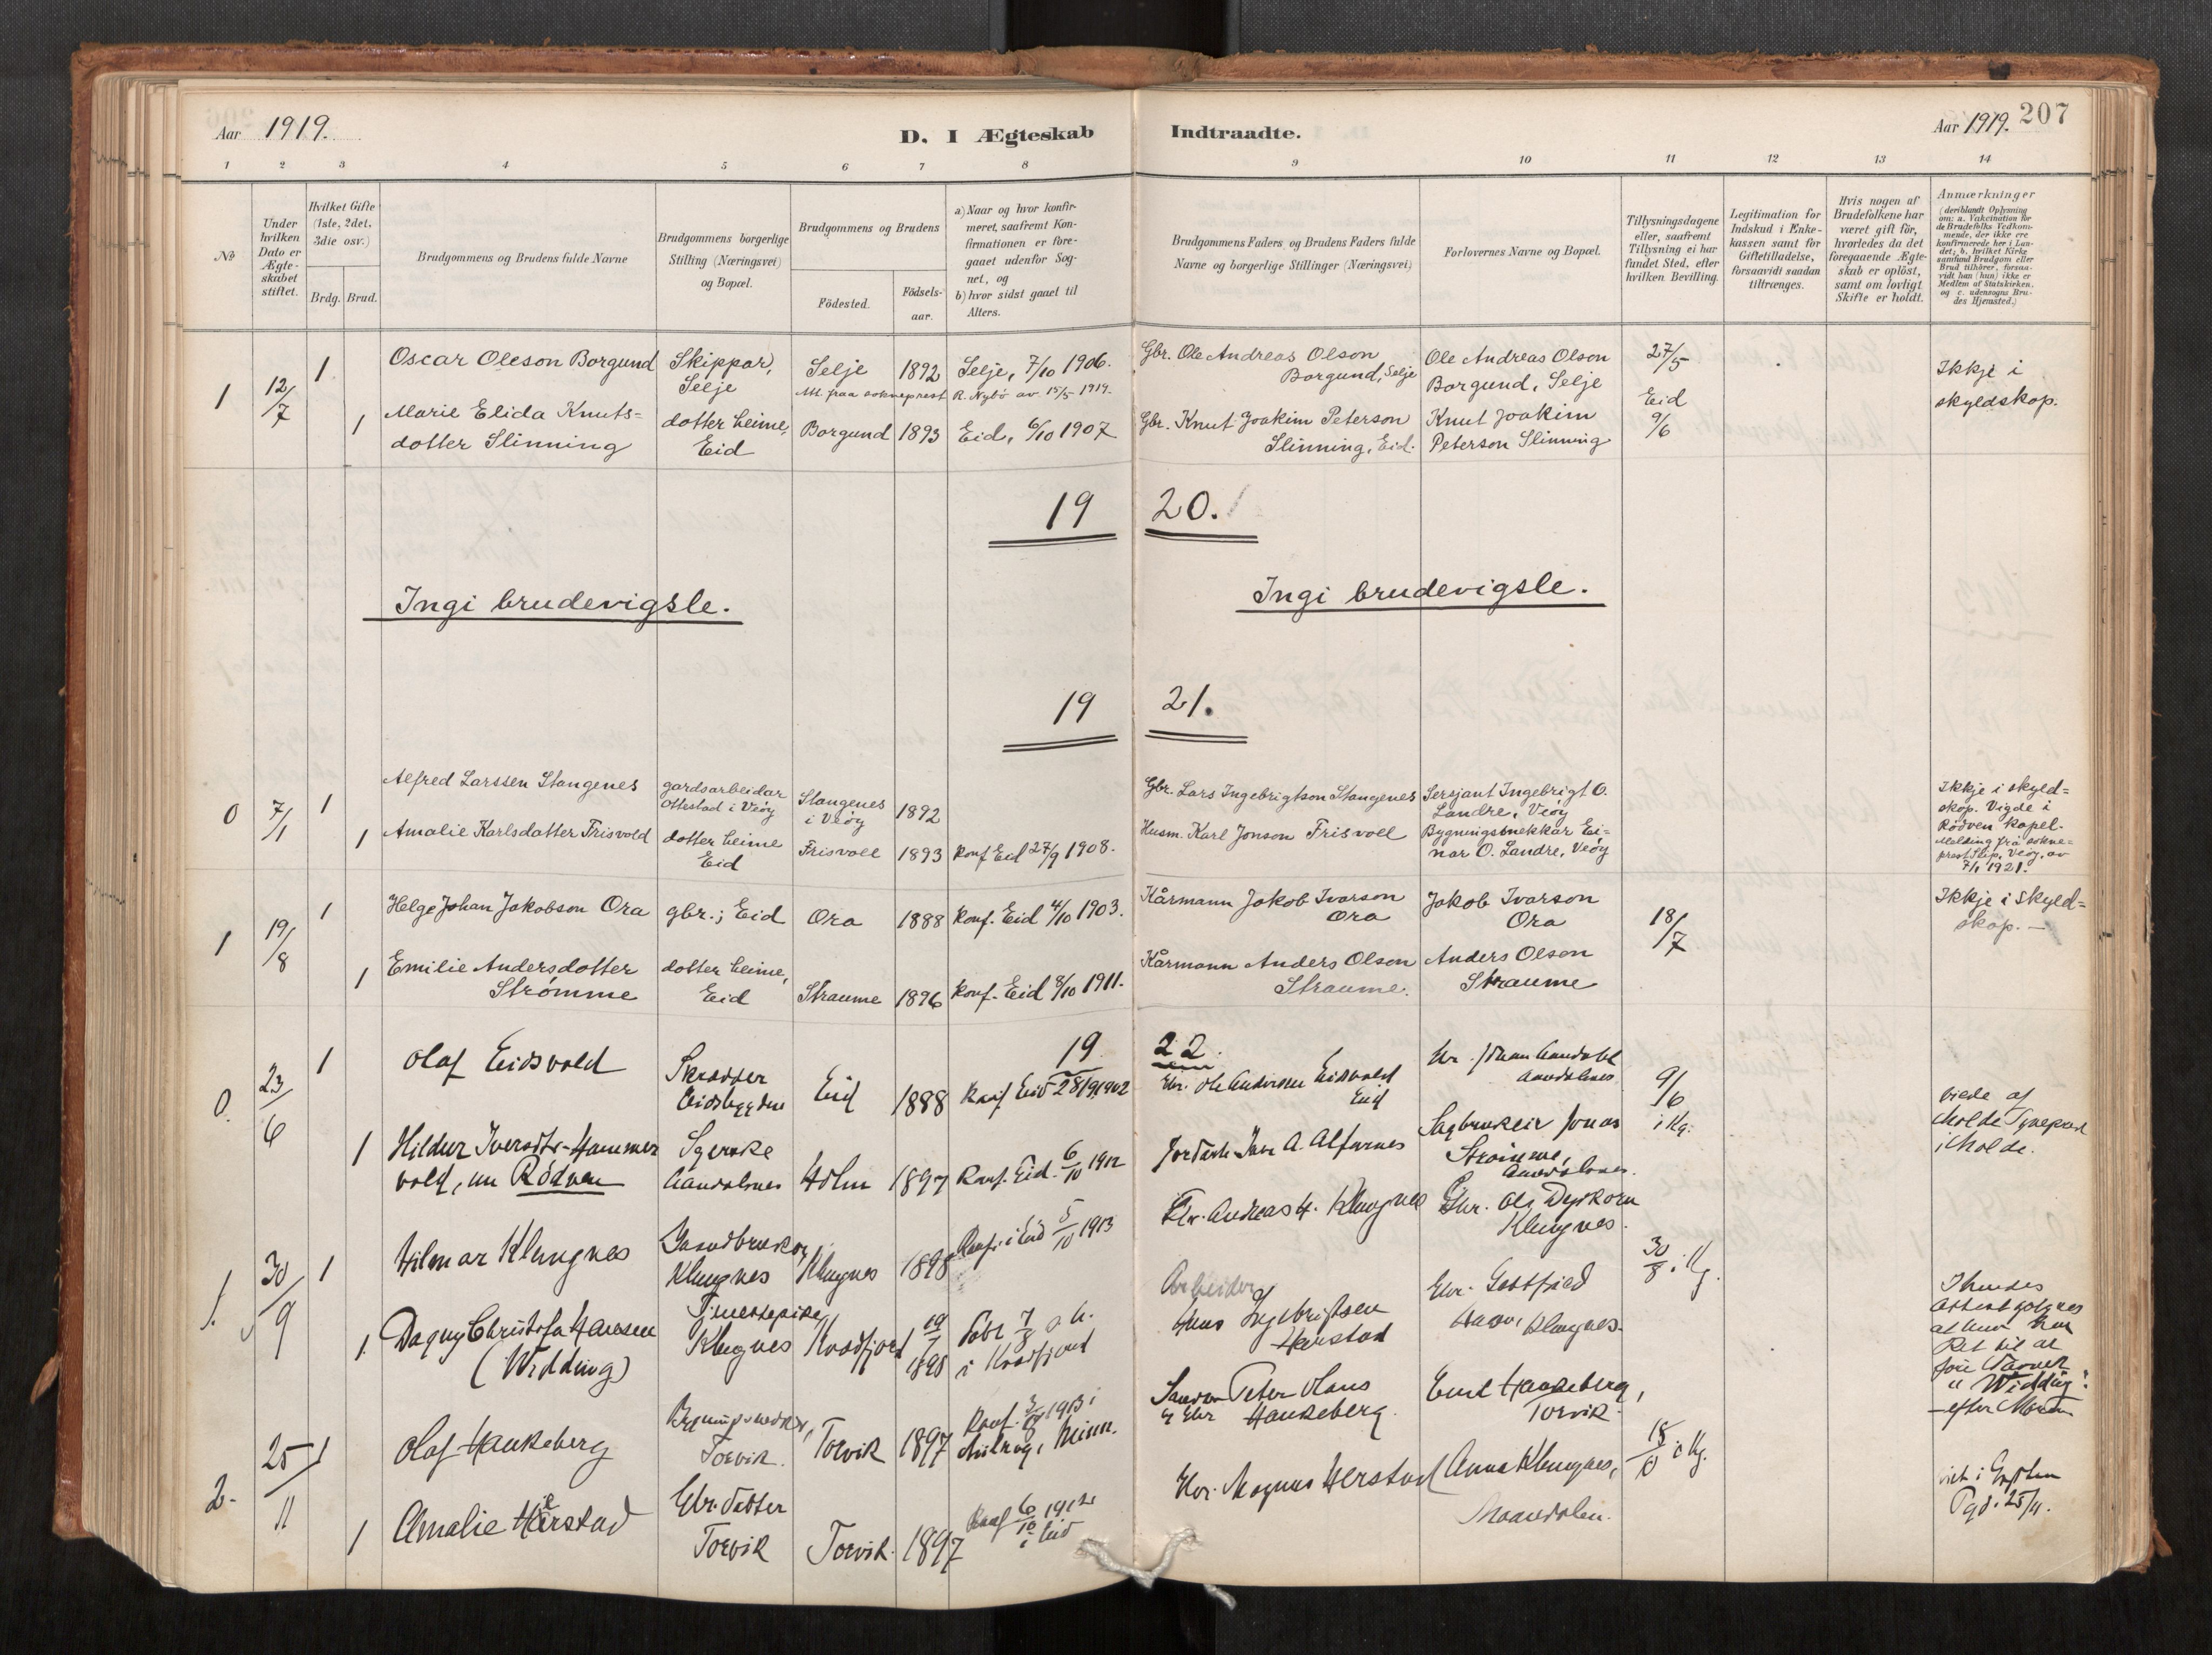 Aar 1919.
D. I Ægteskab
Indtraadte.
Aar 1919. 207
1 2 3 4 5 6 7 8 9 10 11 12 13 14
No
Under
hvilken
Dato er
Ægte-
skabet
stiftet.
Hvilket Gifte
(1ste, 2det,
3die osv.)
Brdg. Brud.
Brudgommens og Brudens fulde Navne
Brudgommens borgerlige
Stilling (Næringsvei)
og Bopæl.
Brudgommens og Brudens
Födested.
Födsels-
aar.
a) Naar og hvor konfir-
meret, saafremt Kon-
firmationen er fore-
gaaet udenfor Sog-
net, og
b) hvor sidst gaaet til
Alters.
Brudgommens Faders og Brudens Faders fulde
Navne og borgerlige Stillinger (Næringsvei)
Forlovernes Navne og Bopæl.
Tillysningsdagene
eller, saafremt
Tillysning ei har
fundet Sted, efter
hvilken Bevilling.
Legitimation for
Indskud i Enke-
kassen samt for
Giftetilladelse,
forsaavidt saadan
tiltrænges.
Hvis nogen af
Brudefolkene har
været gift för,
hvorledes da det
foregaaende Ægte-
skab er oplöst,
samt om lovligt
Skifte er holdt.
Anmærkninger
(deriblandt Oplysning
om: a. Vakcination for
de Brudefolks Vedkom-
mende, der ikke ere
konfirmerede her i Lan-
det; b. hvilket Kirke
samfund Brudgom eller
Brud tilhörer, forsaa-
vidt han (hun) ikke er
Medlem af Statskirken.
og c. udensogns Bru-
des Hjemsted.)
1 12/7 1 Oscar Oleson Borgund
Skippar,
Selje
Selje 1892 Selje, 7/10 1906.
Att. fraa sokneprest R. Nybö av 15/5 1919.
Gbr. Ole Andreas Olson
Borgund, Selje
Ole Andreas Olson
Borgund, Selje
27/5
Eid
9/6
Ikkje i
skyldskap.
1 Marie Elida Knuts-
dotter Slinning
dotter heime,
Eid
Borgund 1893 Eid, 6/10 1907
Gbr. Knut Joakim Peterson
Slinning, Eid.
Knut Joakim
Peterson Slinning
19 20.
Ingi brudevigsle.
Ingi brudevigsle.
19 21.
0 7/1 1 Alfred Larssen Stangenes
gardsarbeidar
Ottestad i Veöy
Stangenes
i Veöy
1892
Gbr. Lars Ingebrigtson Stangenes
Sersjant Ingebrigt O.
Landre, Veöy
Ikkje i skyld-
skap. Vigde i
Rödven kapel.
Melding frå sokne-
prest Slip, Veöy, av
7/1 1921.
1 Amalie Karlsdatter Frisvold
dotter heime
Eid
Frisvoll 1893 Konf Eid 27/9 1908.
Husm. Karl Jonson Frisvoll
Bygningssnekkar Ei-
nar O. Landre, Veöy
1 19/8 1 Helge Johan Jakobson Ora
gbr.; Eid Ora 1888 Konf. Eid 4/10 1903.
Kårmann Jakob Ivarson
Ora
Jakob Ivarson
Ora
18/7
Ikkje i skyld-
skap. —
1 Emilie Andersdotter
Strømme
dotter heime,
Eid
Straume 1896 Konf. Eid 8/10 1911.
Kårmann Anders Olson
Straume.
Anders Olson
Straume
19 22.
0. 23/6 1 Olaf Eidsvold
Skrædder
Eidsbygden
Eid 1888 Konf Eid 28/9 1902
Gbr. Ole Andersen Eidsvold
Eid
9/6
i Kg.
viede af
i Molde.
1 Hildur Iversdtr. Hammer
vold, nu Rödven
Syerske
Aandalsnes
Holm 1897 Konf. Eid. 6/10 1912
Iver A. Alfarnes
Jonas
Strömme,
Aandalsnes.
1. 30/9 1 Hilmar Klungnes
Klungnes
Klungnes 1898 Konf. i Eid 5/10 1913
Gbr. Andreas H. Klungnes
Gbr. Ole
Klungnes.
30/8 i Kg.
1. Dagny Christofa Hansen
(Widding)
Tjenestepike
Klungnes
Kvædfjord 19/7
1898
i Kvædfjord
Arbeider
Hans Ingebrigtsen
Harstad
Gbr. Gottfried
Klungnes
at hun har
Ret til at
føre Navnet
"Widding"
efter Moren
2. 25/11 1 Olaf Haukeberg
Torvik.
Torvik 1897
Minn.
Peter Olaus
Haukeberg.
Emil Haukeberg,
Torvik.
18/10 i Kg.
1 Amalie Herstad
Gbr. datter
Torvik
Torvik. 1897
Konf 6/10 1912
i Eid
Gbr. Magnus Herstad
Anna Klungnes,
Maandalen.
25/11.